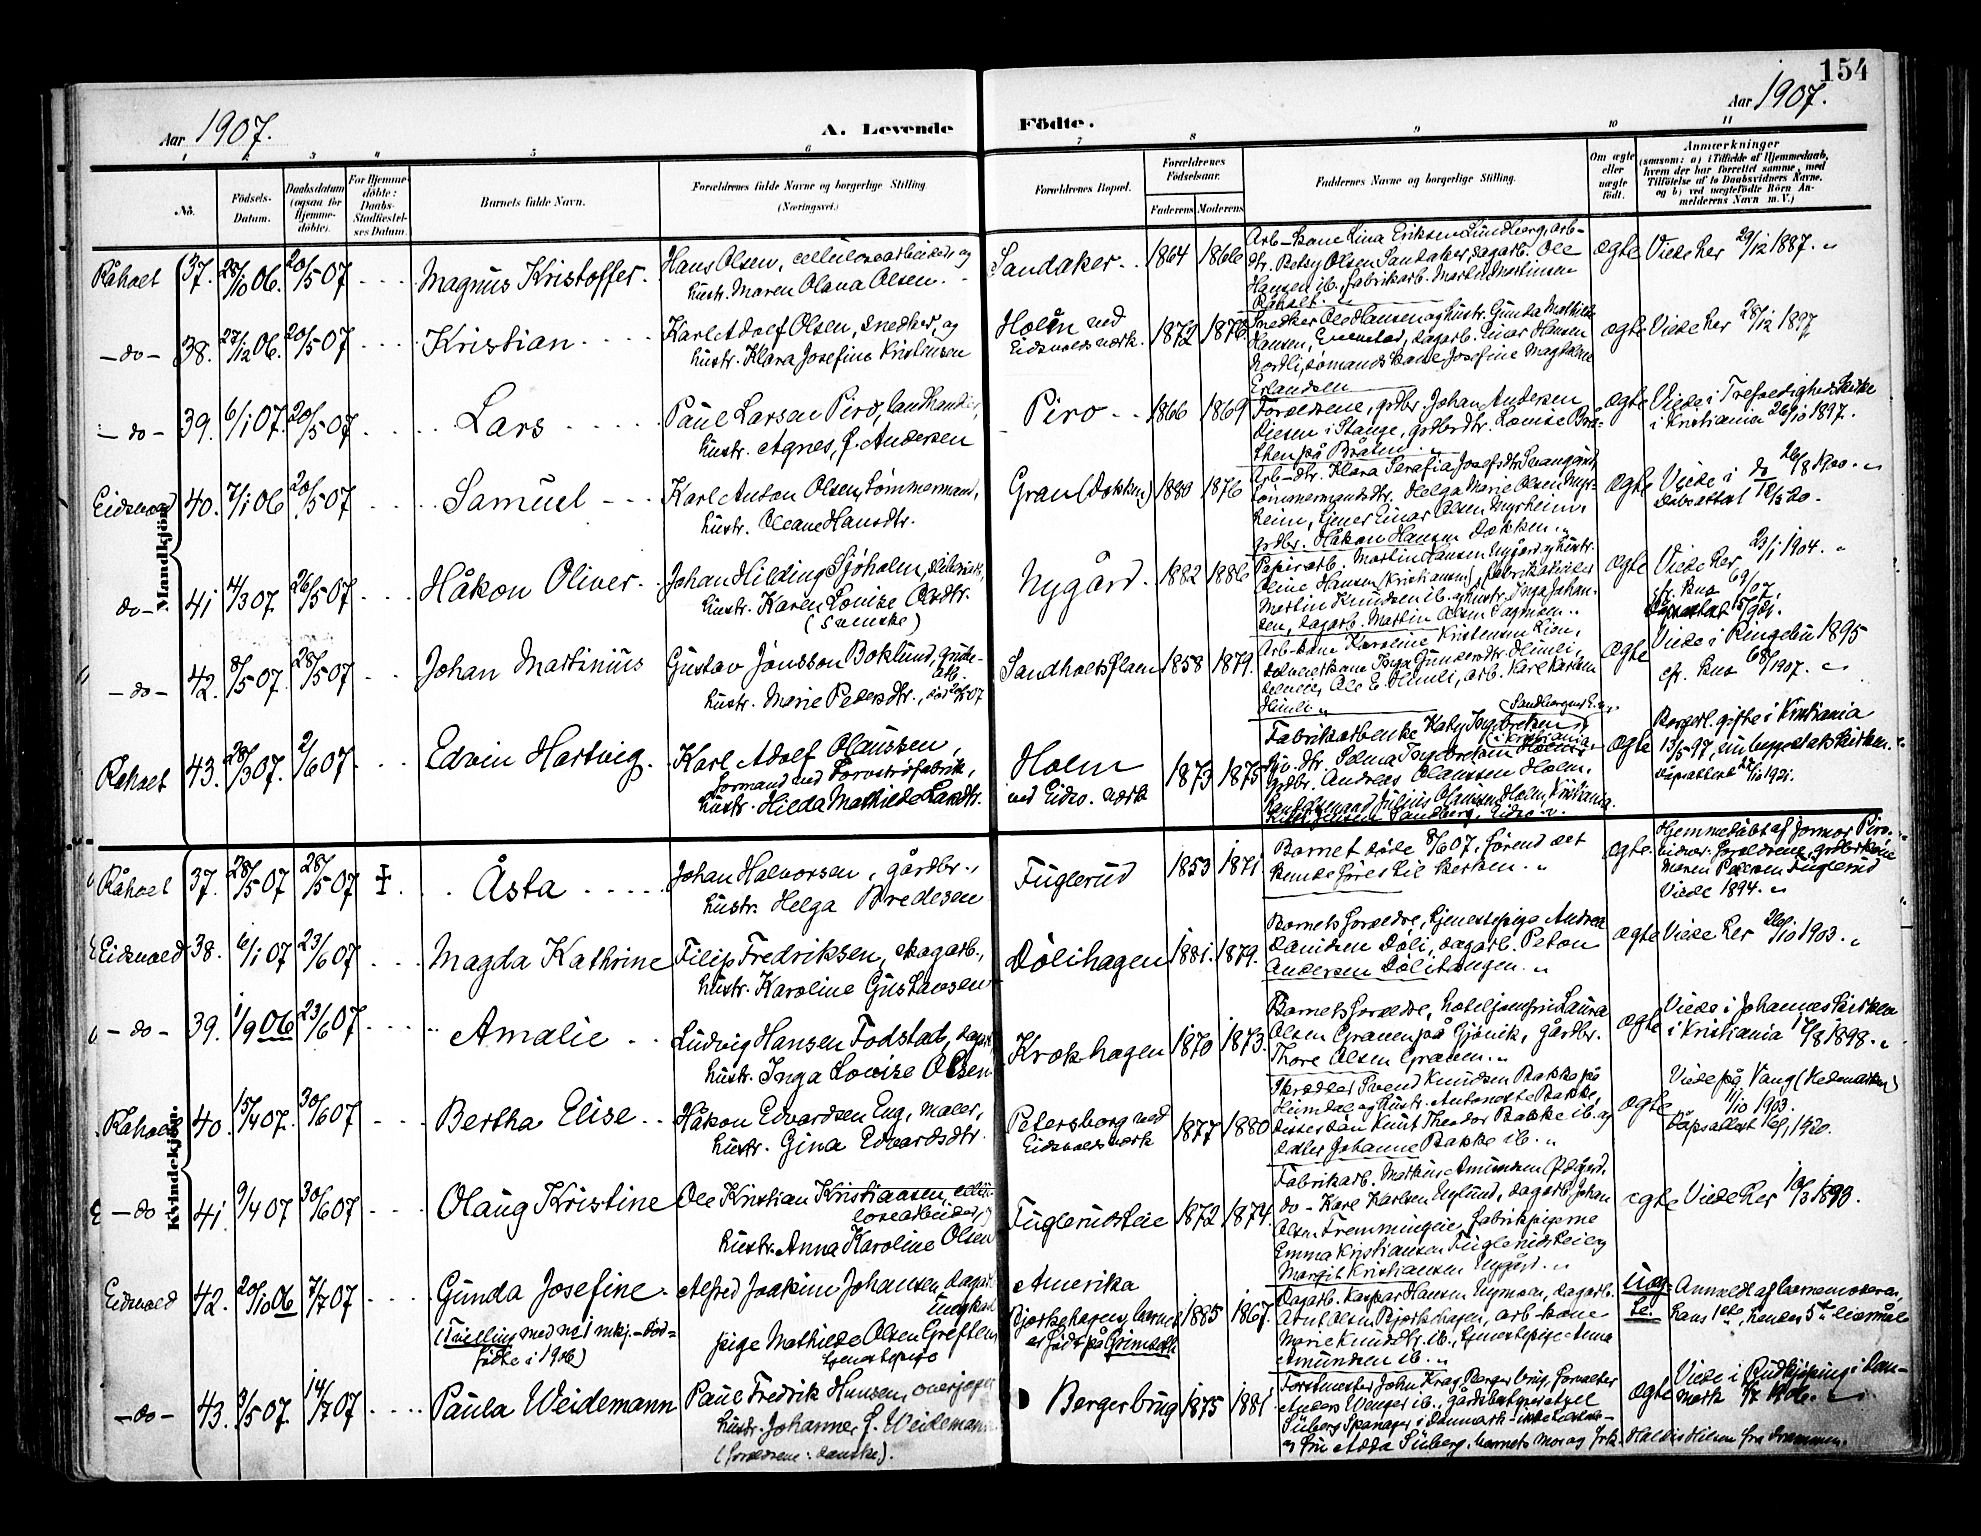 154
Aar 1907.
A. Levende Födte.
Aar 1907.
1 2 3 4 5 6 7 8 9 10 11
No.
Födsels-Datum.
Daabsdatum (ogsaa for Hjemme-döbte).
For Hjemme-döbte: Daabs-Stadfæstel-ses Datum.
Barnets fulde Navn.
Forældrenes fulde Navne og borgerlige Stilling
(Næringsvei.)
Forældrenes Bopæl.
Forældrenes Födselsaar.
Faderens Moderens
Faddernes Navne og borgerlige Stilling.
Om ægte eller uægte födt.
Anmærkninger
(saasom: a) i Tilfælde af Hjemmedaab,
hvem der har forrettet samme, med
Tilföielse af to Daabsvidners Navne,
og b) ved uægtefödte Börn An-
melderens Navn m. V.)
Mandkjön.
Råholt 37. 28/10 06. 20/5 07 Magnus Kristoffer. Hans Olsen, cellulosearbeider og
hustr. Maren Olava Olsen. Sandaker. 1864 1866
Arb-kone Lina Eriksen Lundberg, arb-
dtr. Betsy Olsen Sandaker, dagarb. Ole
Hansen ib., fabrikarb. Martin Martinsen
Råholt.
ægte Viede her 29/12 1887.
-do- 38. 27/12 06. 20/5 07 Kristian Karl Adolf Olsen, snedker, og
hustr. Klara Josefine Kristensen Holm ved
Eidsvolds værk. 1872 1876
Snedker Ole Hansen og hustr. Gunda Mathilde
Hansen, dagarb. Einar Hansen
Nordli, sømandskone Josefine Magdalene
Erlandsen
ægte Viede her 28/12 1897
-do- 39. 6/1 07. 20/5 07 Lars Paul Larsen Piro, landhandler,
hustr. Agnes, f. Andersen Piro 1866 1869
Forældrene, grdbr. Johan Andersen
Diesen i Stange, grdbrdtr. Lovise Brå-
then på Bråten.
ægte Viede i Trefoldighedskirke
i Kristiania 26/10 1897.
Eidsvold 40. 7/1 06 20/5 07 Samuel Karl Anton Olsen, tømmermand,
hustr. Oleane Hansdtr. Gran (Dokken) 1880 1876
Arb-dtr. Klara Serafia Josefsdtr.
tømmermandsdtr. Helga Marie Olsen Myr-
heim, tjener Einar Olsen Myrheim,
grdbr. Håkon Hansen Dokken.
ægte Viede i do 26/8 1900.
-do- 41 4/3 07. 26/5 07 Håkon Oliver. Johan Hilding Sjøholm,
hustr. Karen Lovise Olsdtr.
(svenske) Nygård. 1882 1886
Papirarb. Martin Hansen Nygård og hustr.
Oline Hansen (Kristiansen), fabrikarbeider
Martin Knudsen ib. og hustr. Inga Johan-
sen, dagarb. Martin Olsen
ægte Viede her 23/1 1904.
-do- 42. 8/5 07. 28/5 07 Johan Martinius Gustav Jonsson Boklund, grube-
arb.
hustr. Marie Pedersdtr., Sandholtsflaen 1858 1879.
Arb-kone Karoline Kristensen Lien,
Inga Gundersdtr. Himli,
Ole E. Himli, arb. Karl Karlsen
Himli
ægte Viede i Ringebu 1895
Råholt 43. 28/3 07. 2/6 07 Edvin Hartvig. Karl Adolf Olaussen,
formand ved Torvstrøfabrik,
hustr. Hilda Mathilde Larsdtr. Holm
ved Eidsv. værk 1873 1875
Fabrikarbeiderske
(i Kristiania)
grdbr. Andreas Olaussen Holm,
Julius Olaussen Holm, Kristiania.
ægte Borgerl. gifte i Kristiania
13/5 97,
Kvindekjön.
Råholt 37. 28/5 07 28/5 07 Åsta Johan Halvorsen, gårdbr.,
hustr. Helga Bredesen Fuglerud 1853 1871
Barnet døde 8/6 07, førend det
kunde føres til kirken.
ægte. Hjemmedøbt af Jormor Piro.
Forældrene, grdbrkone
Maren Paulsen Fuglerud
Viede 1894.
Eidsvold 38. 6/1 07 23/6 07 Magda Kathrine Filip Fredriksen, skogarb.,
hustr. Karoline Gustavsen Dölihagen 1881. 1879.
Barnets forældre, tjenestepige Andrea
Danielsen Döli, dagarb. Peton
Andersen Dölihaugen.
ægte Viede her 26/10 1903.
-do- 39. 1/9 06 23/6 07 Amalie Ludvig Hansen Fodstad, dagarb.
hustr. Inga Lovise Olsen Krokhagen 1870 1873.
Barnets forældre, hoteljomfru Laura
Olsen Granen på Gjövik, gårdbr.
Thore Olsen Granen.
ægte Viede i Johanneskirken
i Kristiania 1898.
Råholt 40. 15/4 07. 30/6 07 Bertha Elise Håkon Edvardsen Eng, maler,
hustr. Gina Edvardsdtr. Petersborg ved
Eidsvolds værk 1877 1880
Skrædder Svend Knudsen Bakke på
Heimdal og hustr. Antonette Bakke,
Knut Theodor Bakke ib. og
Johanne Bakke ib.
ægte Viede på Vang (Hedemarken)
1/10 1903.
Dåpsattest 1920.
-do- 41. 9/4 07 30/6 07 Olaug Kristine Ole Kristian Kristiansen, cellu-
losearbeider,
hustr. Anna Karoline Olsen Fuglerudseie 1872 1874.
Fabrikarb. Martin Amundsen Ødegård,
do- Karl Karlsen Nylund, dagarb. Johan
Olsen Fremmingeie, fabrikpigerne
Emma Kristiansen Fuglerudseie og
Margit Kristiansen Nygård.
ægte Viede her
Eidsvold 42. 20/10 06 7/7 07 Gunda Josefine.
(Tvilling med no 1 mkj.-død-
födte i 1906) Alfred Joakim Johansen, dagarb.
ungkarl
pige Mathilde Olsen Greften
tjenestepige Amerika
Bjørkehagen, barnet
er født på Grimseth 1885 1867.
Dagarb. Kaspar Hansen Nyman, dagarb.
Arnt Olsen Bjørkehagen, arb-kone
Marie Knudsdtr. ib., tjenestepige Anna
Amundsen ib.
Uæg-
te. Anmeldt af barnemoderen,
hans 1ste, hendes 5te leiermål
-do- 43. 3/5 07. 14/7 07 Paula Weidemann Paul Fredrik Hansen, overjæger
hustr. Johanne, f. Weidemann
(forældrene: danske). Bergerbrug 1875 1881
Forstmester John Krag Berger brug, forvalter
Anders Wenger ib., gårdsbestyrer Axel
Suberg Spanager i Danmark
og fru Adda Suberg, barnets mor og frk. Haldis Hilsen fra Drammen.
ægte Viede i Rudkjøbing i Dan-
mark 1906.